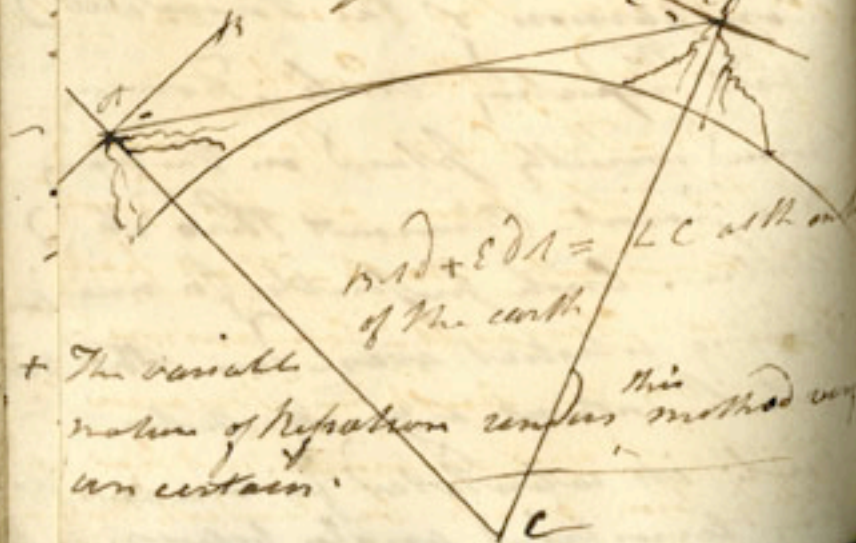 B
A
BAD + EDA = ∠ C at the
of the earth
+ The variable
nature of Refraction renders this method very
uncertain.
C